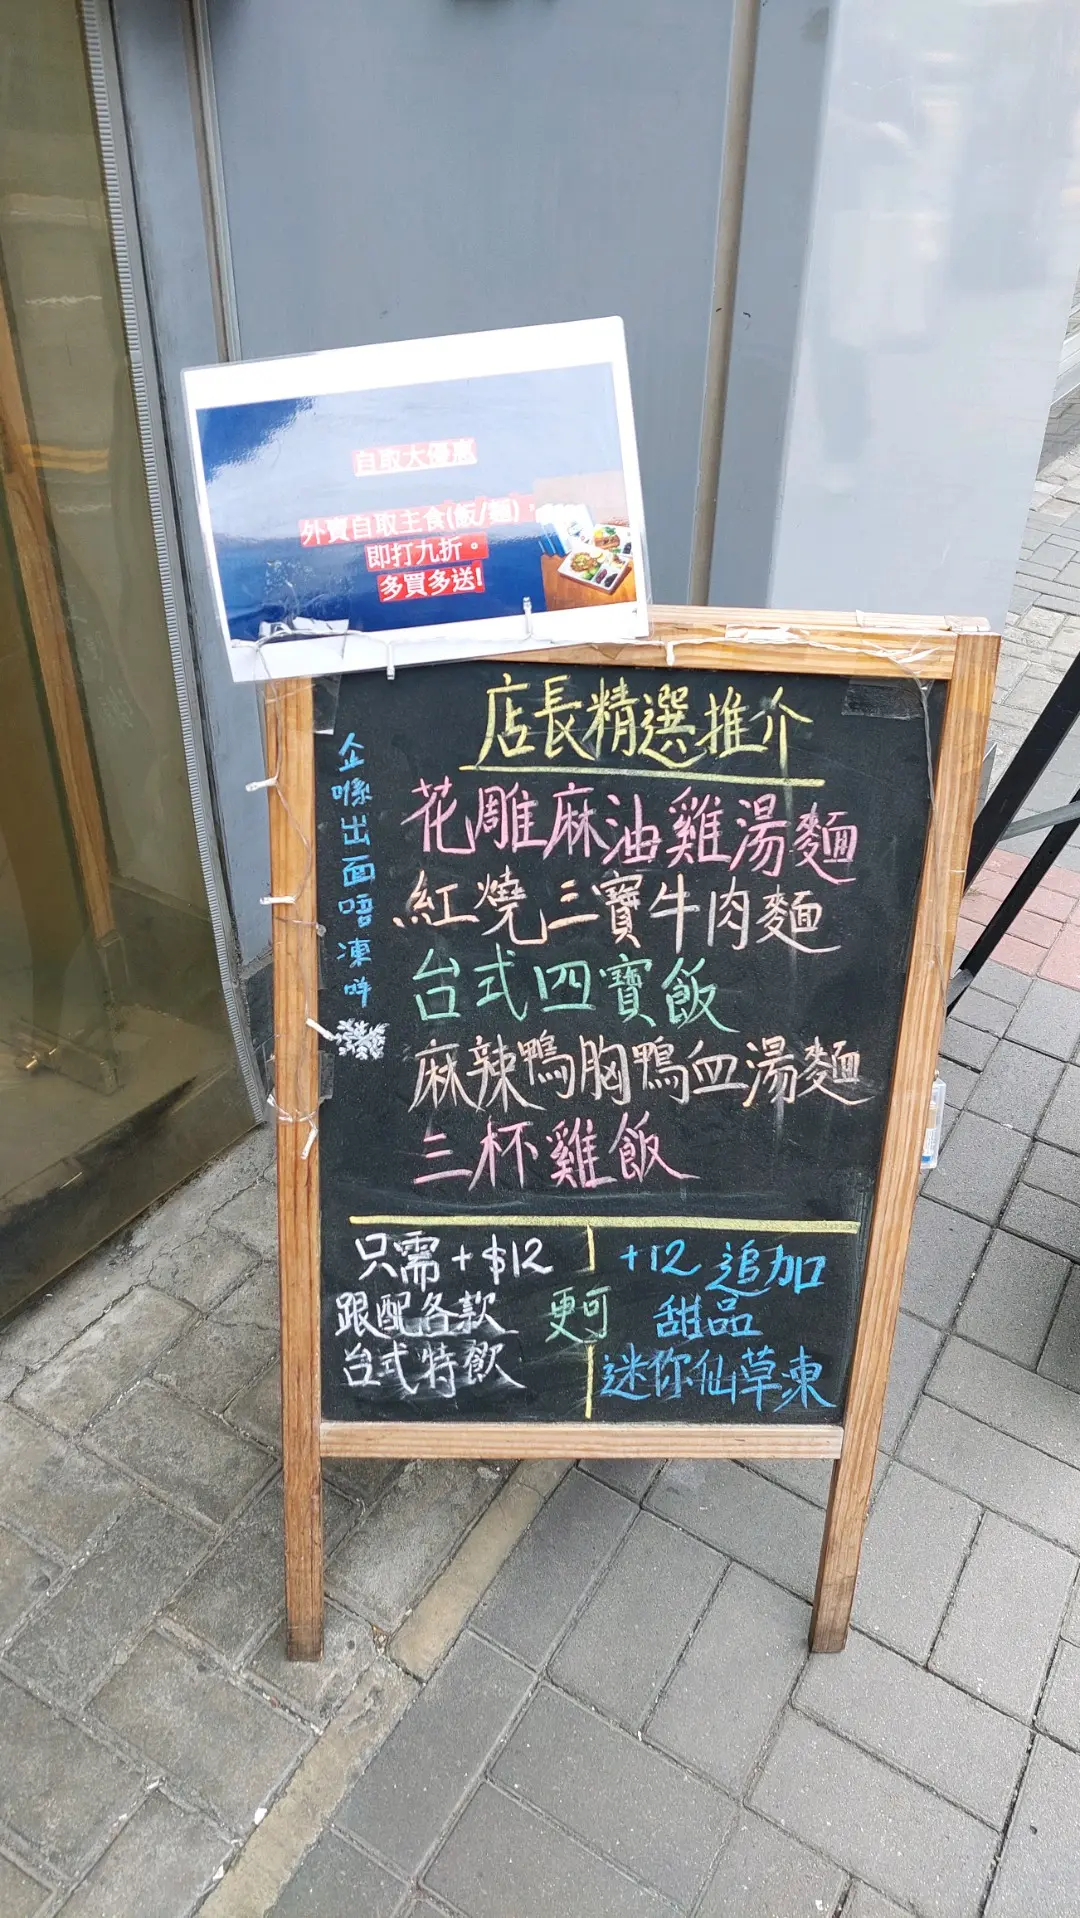 自取大優惠
外賣自取主食(飯/麵)，
即打九折。
多買多送!
店長精選推介
企喺出面唔凍咩
花雕麻油雞湯麵
紅燒三寶牛肉麵
台式四寶飯
麻辣鴨胸鴨血湯麵
三杯雞飯
只需+$12
跟配各款
台式特飲
更可
+12 追加
甜品
迷你仙草凍